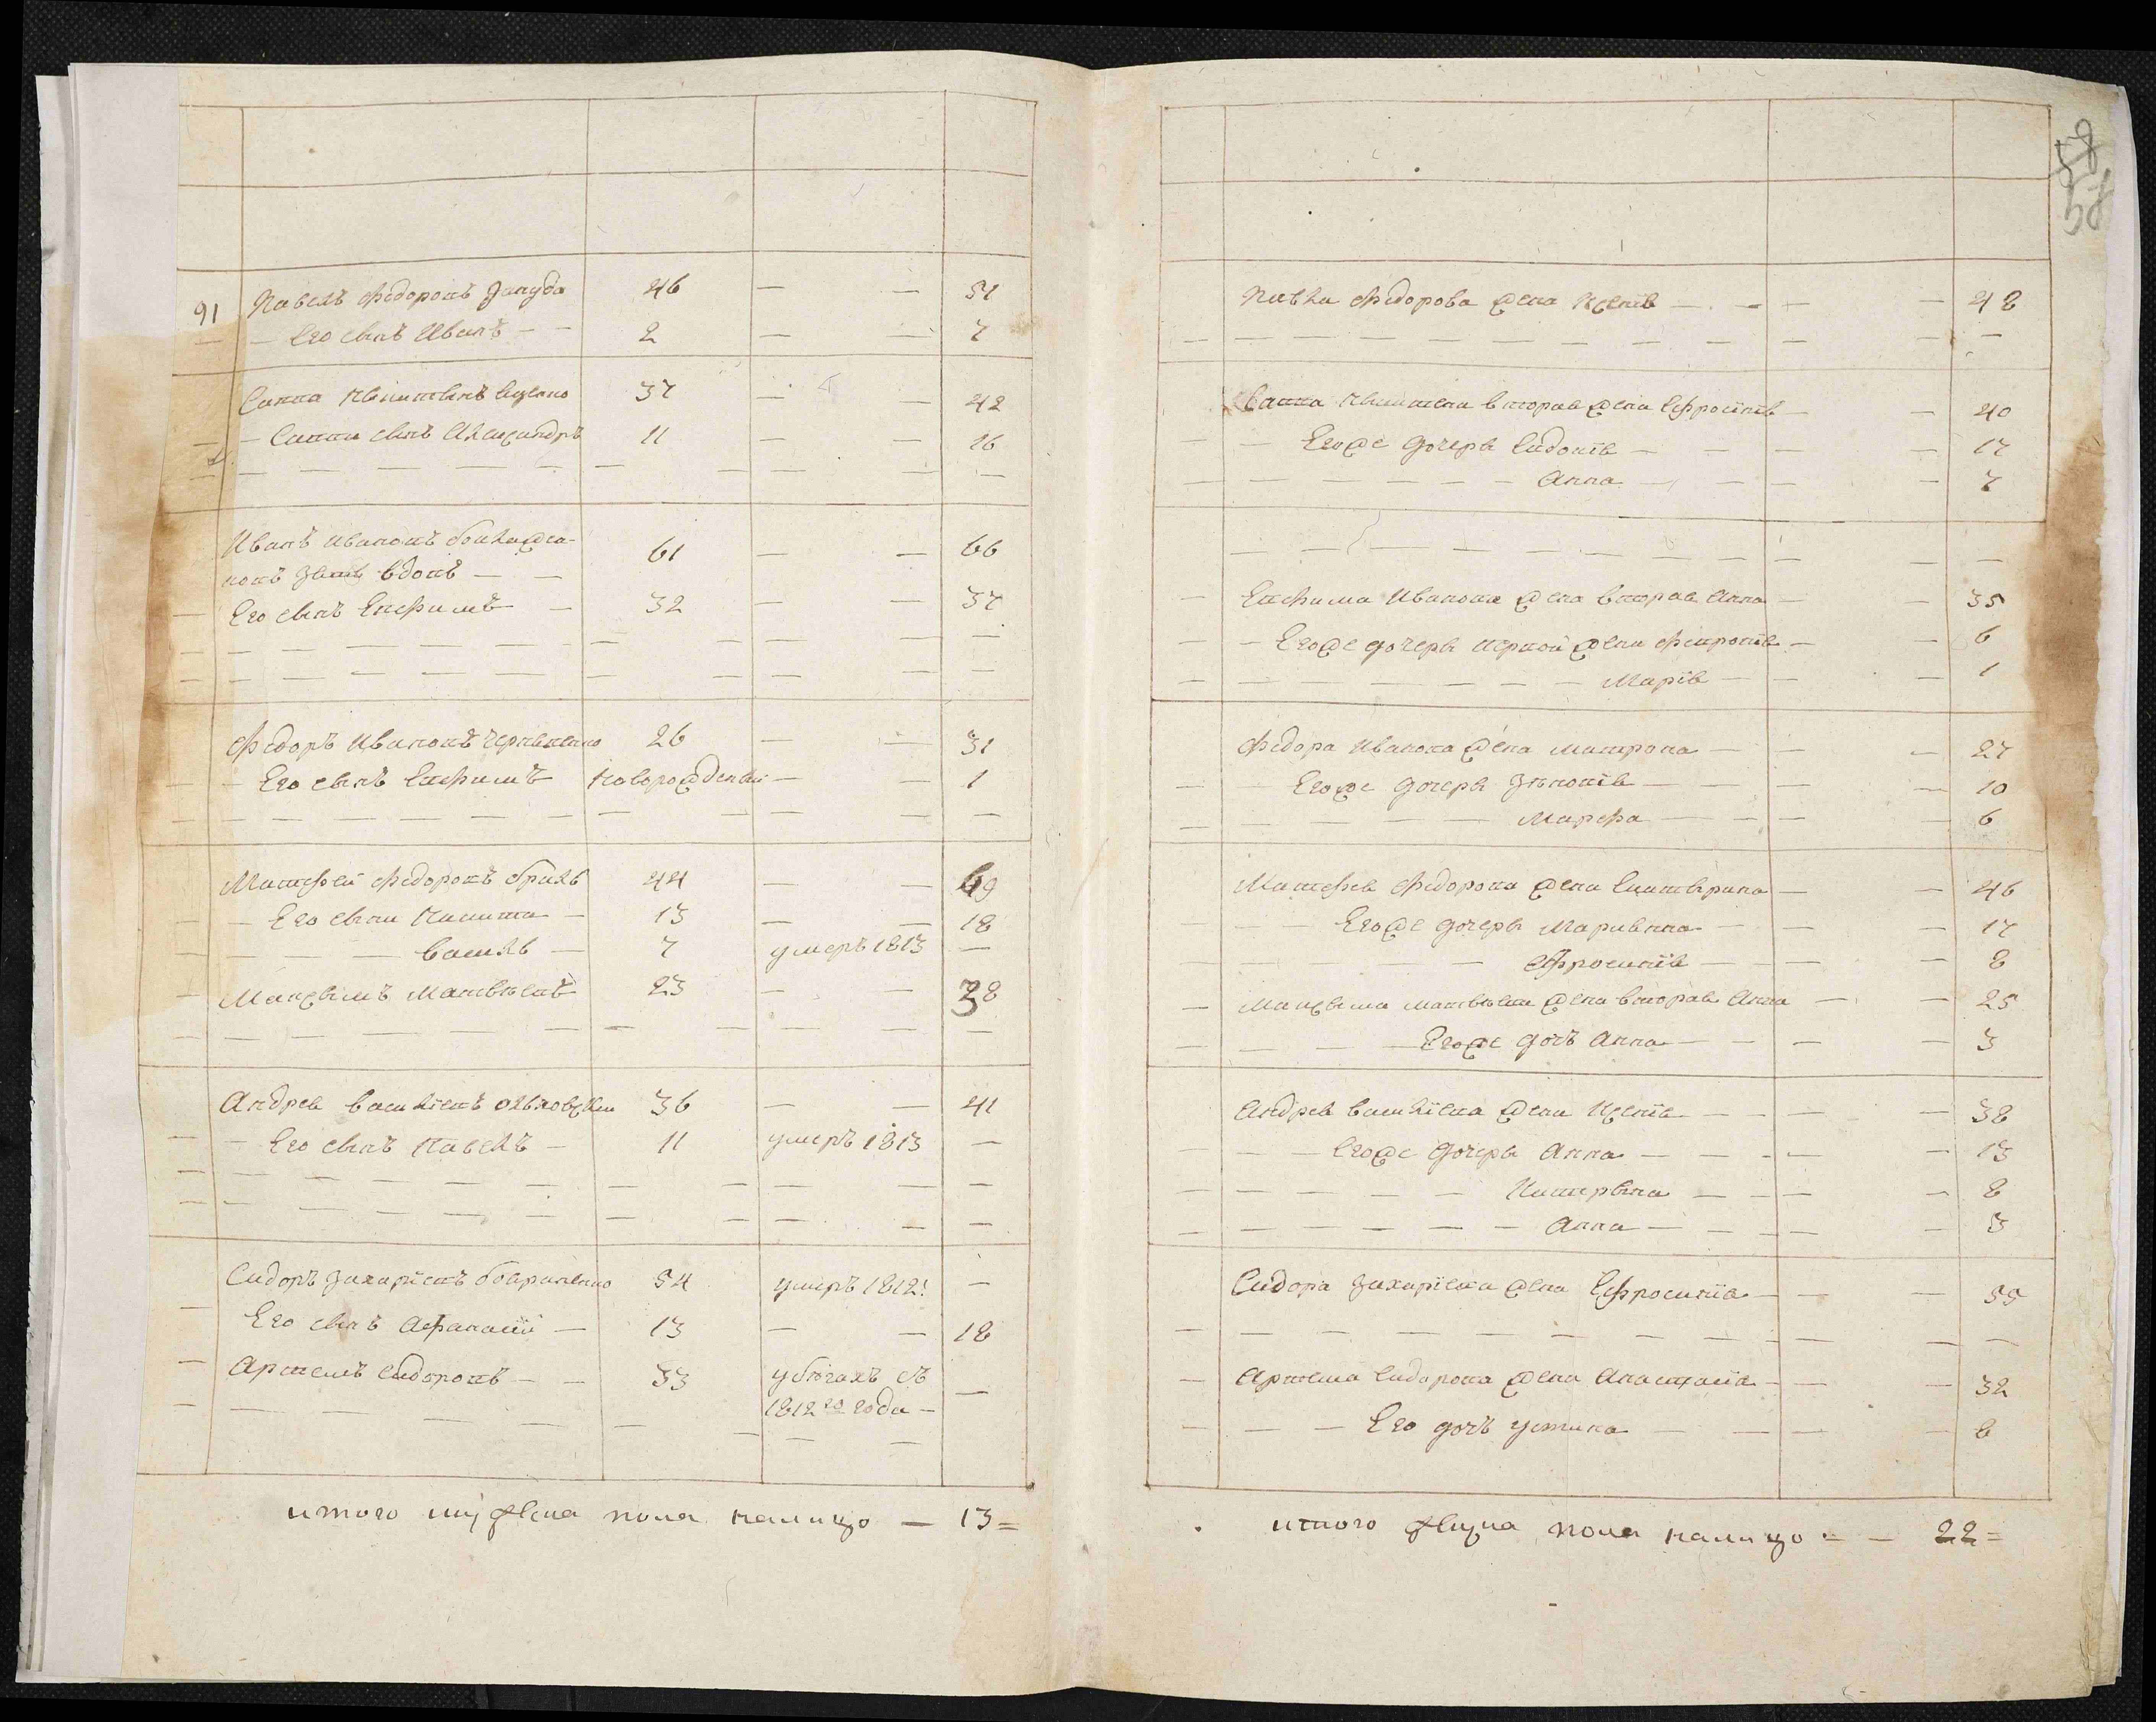 91 Павелъ Федоровъ Зануда 46 — — 51
— Его сынъ Иванъ — — 2 — — 7
Савва Никитинъ 37 — — 42
— Саввы сынъ Александръ 11 — — 16
Иванъ Ивановъ
зять вдовъ — — 61 — — 66
Его сынъ Евфимъ — 32 — — 37
Федоръ Ивановъ Чернявенко 26 — — 31
— Его сынъ Евфимъ Новорожденный — — 1
Матфей Федоровъ Браль 44 — — 49
— Его сыны Никита — 13 — — 18
— — — Василь — 7 умеръ 1813 —
— Максымъ Матвѣевъ 23 — — 28
Андрей Василіевъ 36 — — 41
— Его сынъ Павелъ — 11 умеръ 1813 —
Сидоръ Захаріевъ Бояриненко 54 умеръ 1812 —
— Его сынъ Афанасій — 13 — — 18
— Артемъ Сидоровъ — — 33 у бѣгахъ съ
1812го года — —
итого мужеска пола налицо — 13 =
58
58
Павла Федорова жена Ксенія — — — — 48
Савва Никитина вторая жена Ефросинія — — 40
— — Егоже дочеры Евдокія — — — — 17
— — — — — — Анна — — — — 7
— Евфима Иванова жена вторая Анна — — 35
— — Егоже дочеры первой жены Февронія — — 6
— — — — — — — Марія — — — 1
Федора Иванова жена Матрона — — — 27
— — Егоже дочеры Зѣновія — — — — 10
— — — — — Марфа — — — — 6
Матфея Федорова жена Екатерина — — 46
— — — Егоже дочеры Мариянна — — — 17
— — — — — Ефросинія — — — 8
— Максыма Матвѣева жена вторая Анна — — 25
— — — — Егоже дочъ Анна — — — — 3
Андрея Василіева жена Ксенія — — — — 38
— — — Егоже дочеры Анна — — — — 13
— — — — — Катерына — — — — 8
— — — — — — Анна — — — — 3
Сидора Захаріева жена Ефросинія — — — 55
— Артема Сидорова жена Анастасія — — — 32
— — — Его дочъ Устина — — — — 8
итого женска пола налицо — — 22 =